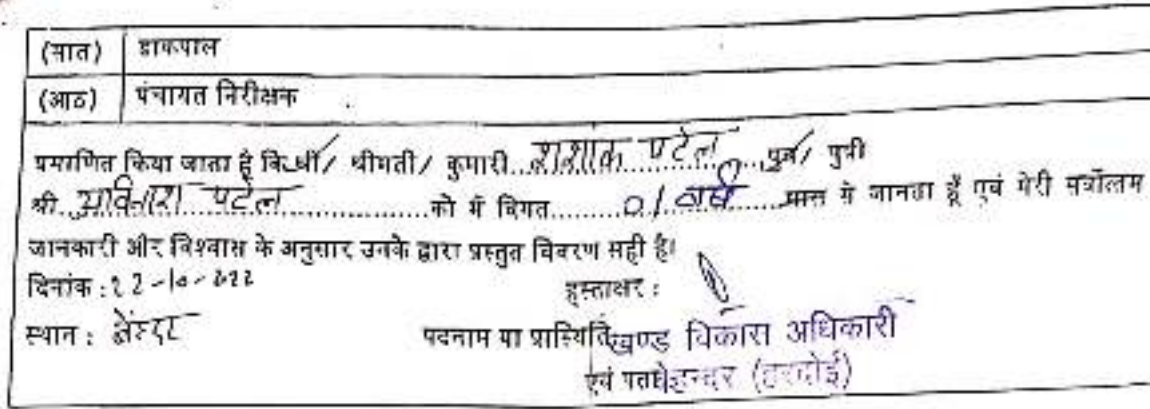 (सात) डाकपाल
(आठ) पंचायत निरीक्षक
प्रमाणित किया जाता है कि श्री/ श्रीमती/ कुमारी शशांक पटेल पुत्र/ पुत्री
श्री अविनाश पटेल को मैं विगत 01 वर्ष मास से जानता हूँ एवं मेरी सर्वोत्तम
जानकारी और विश्वास के अनुसार उनके द्वारा प्रस्तुत विवरण सही है।
दिनांक : 22-10-
हस्ताक्षर :
स्थान : बेंहदर
पदनाम या प्रास्थिति खण्ड विकास अधिकारी
एवं पता बेहन्दर (हरदोई)